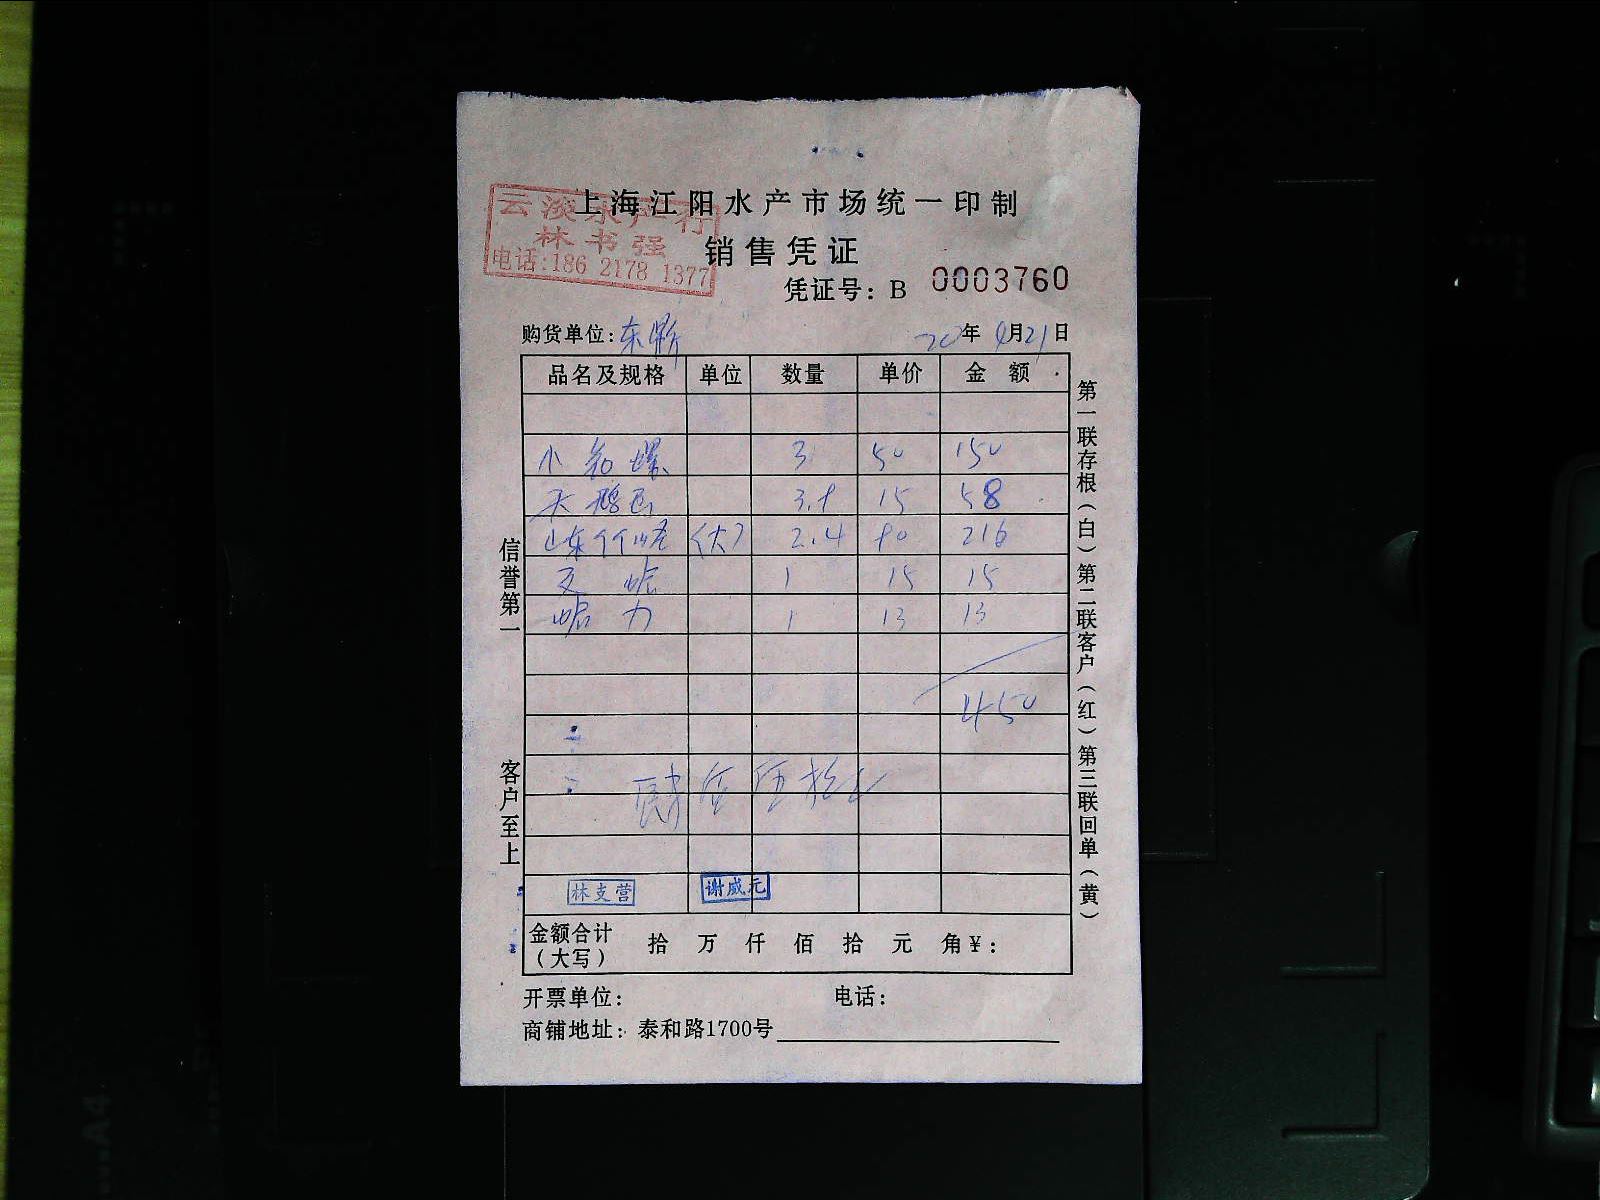 上海江阳水产市场统一印制
云淡水产行
林书强
电话:186 2178 1377
销售凭证
凭证号: B 0003760
购货单位: 东
20年 9月21日
品名及规格 单位 数量 单价 金额
小 螺 3 50 150
天鹅 3.9 15 58
山东 (大) 2.4 90 216
蛤 1 15 15
1 13 13
450
肆佰伍拾元
林支营 谢威元
金额合计(大写) 拾 万 仟 佰 拾 元 角 ¥:
开票单位: 电话:
商铺地址: 泰和路1700号
信誉第一
客户至上
第一联存根(白)第二联客户(红)第三联回单(黄)